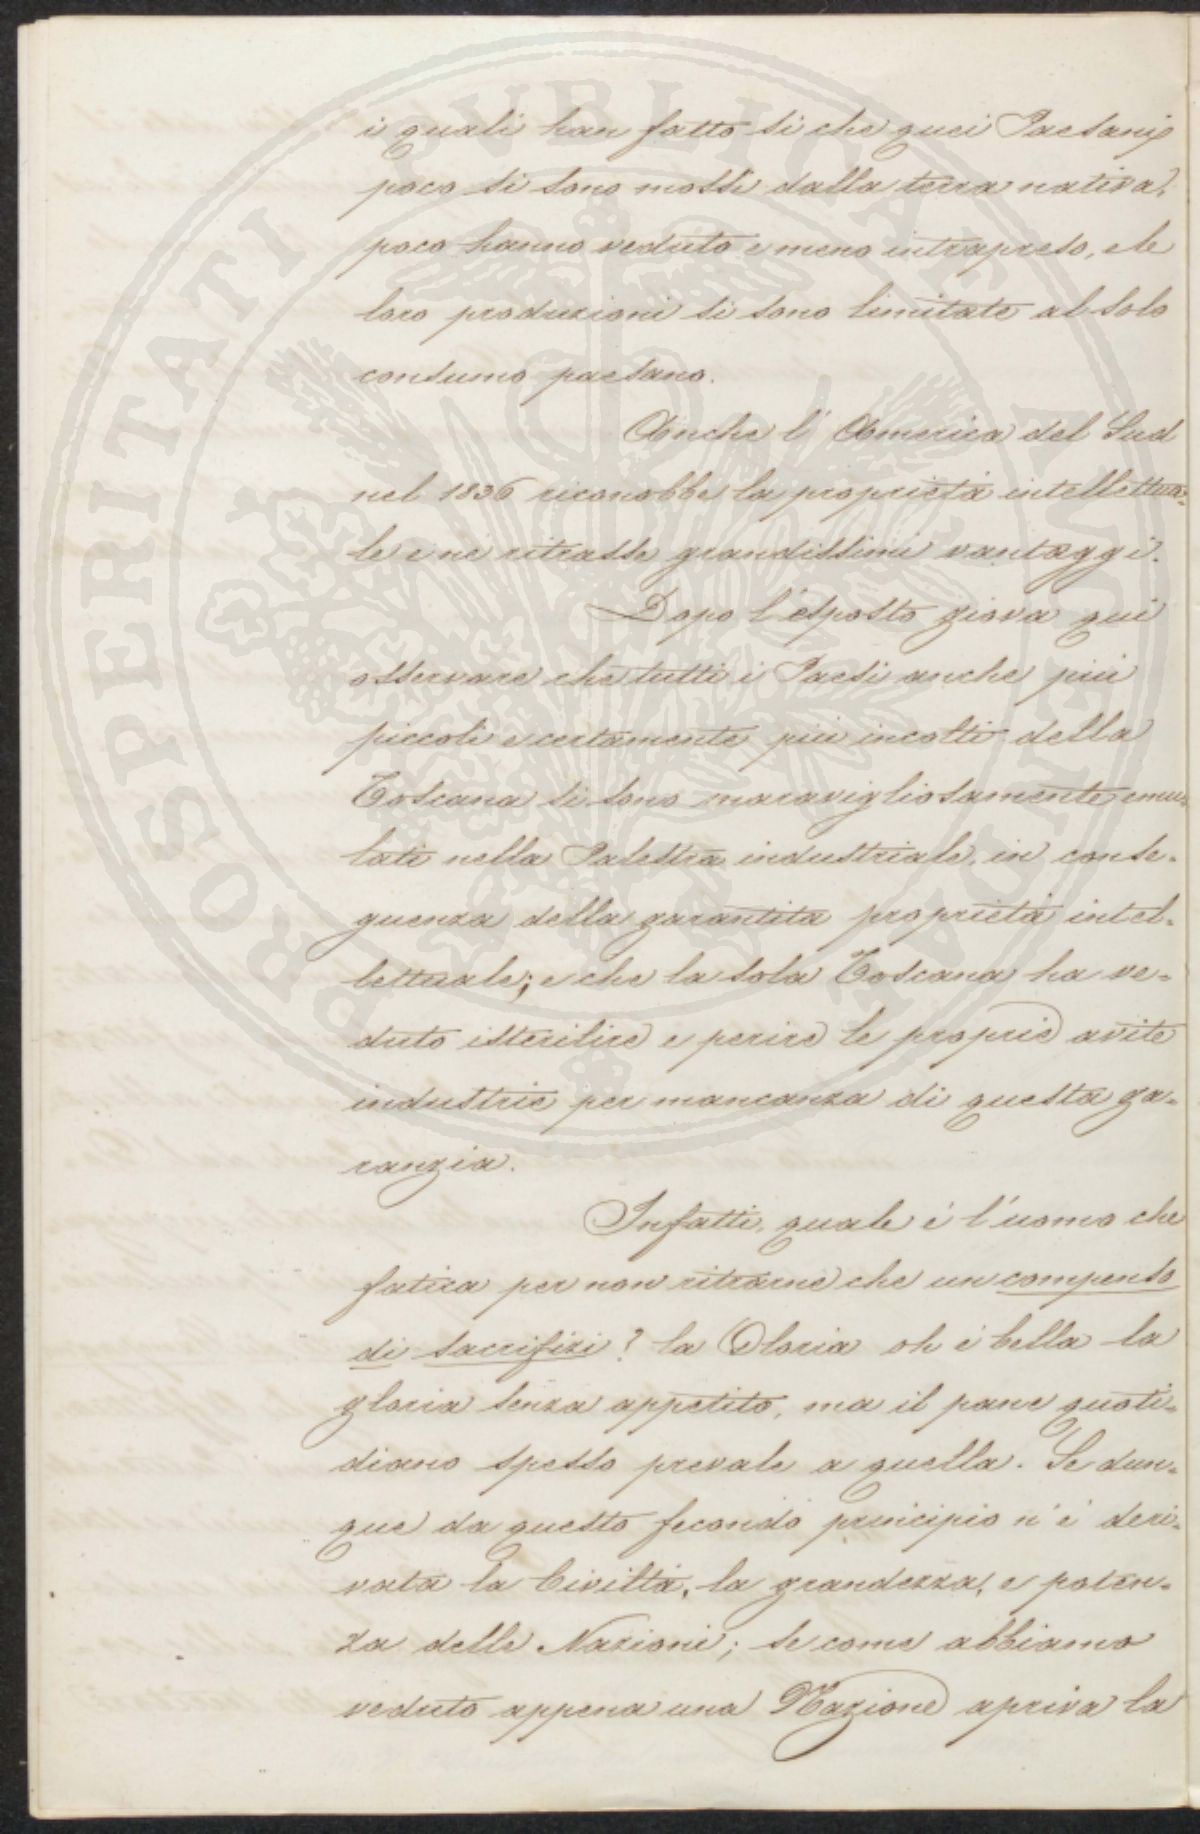 i quali han fatto si che quei Paesani
poco si sono mossi dalla terra nativa,
poco hanno veduto e meno intrapreso, e le
loro produzioni si sono limitate al solo
consumo paesano.
Anche l'America del Sud
nel 1836 riconobbe la proprietà intellettua=
le e ne ritrasse grandissimi vantaggi.
Dopo l'esposto giova qui
osservare che tutti i Paesi anche più
piccoli e certamente più incolti della
Toscana si sono maravigliosamente emu=
lati nella Palestra industriale, in conse=
guenza della garantita proprietà intel=
lettuale; e che la sola Toscana ha ve=
duto isterilire e perire le proprie avite
industrie per mancanza di questa ga=
ranzia.
Infatti, quale è l'uomo che
fatica per non ritrarne che un compenso
di sacrifizi? la Gloria oh è bella la
gloria senza appetito, ma il pane quoti=
diano spesso prevale a quella. Se dun=
que da questo fecondo principio n'è deri=
vata la Civiltà, la grandezza, e poten=
za delle Nazioni; se come abbiamo
veduto appena una Nazione apriva la
PROSPERITATI PVBLICAE AVGENDAE